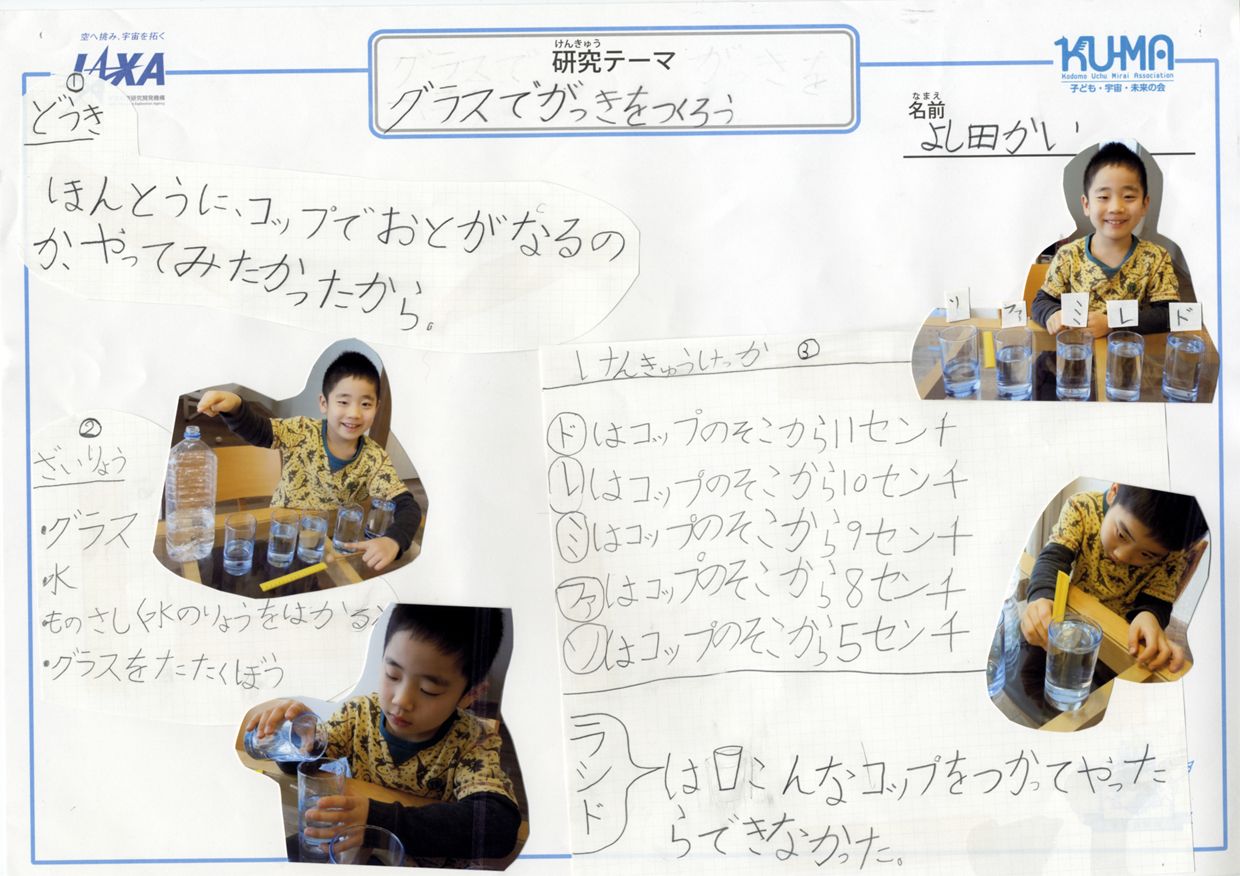 空へ挑み、宇宙を拓く
JAXA
けんきゅう
研究テーマ
グラスでがっきをつくろう
KU-MA
Kodomo Uchu Mirai Association
子ども・宇宙・未来の会
なまえ
名前
よし田かい
①
どうき
ほんとうに、コップでおとがなるの
か、やってみたかったから。
②
ざいりょう
・グラス
・水
・ものさし(水のりょうをはかる)
・グラスをたたくぼう
ソ ファ ミ レ ド
けんきゅうけっか ③
ドはコップのそこから11センチ
レはコップのそこから10センチ
ミはコップのそこから9センチ
ファはコップのそこから8センチ
ソはコップのそこから5センチ
ラシド
はこんなコップをつかってやった
らできなかった。